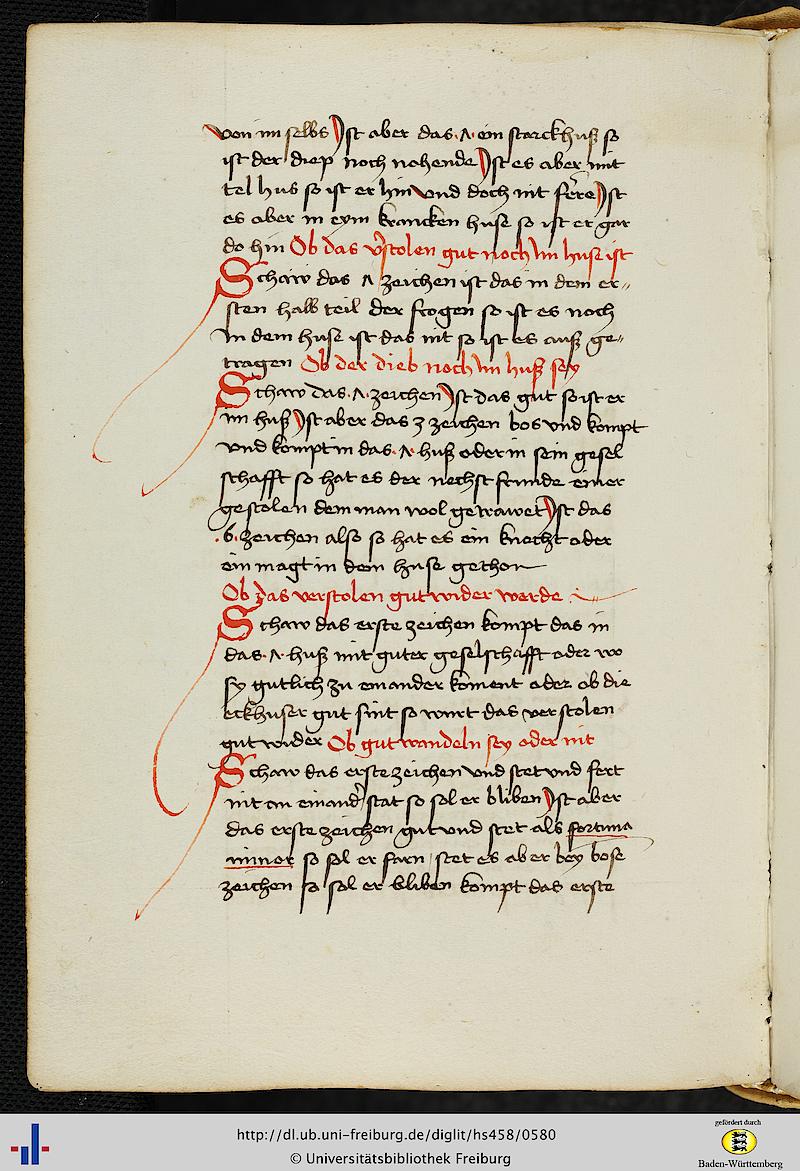 von im selbs Ist aber das .1. ein starckhuß so
ist der diep noch nohende Ist es aber mit
tel hus so ist er hin vnd doch nit fere Ist
es aber in eym krancken huse so ist er gar
do hin Ob das v̉stolen gut noch Im huse ist
Schaw das 1 zeichen ist das in dem er-
sten halb teil der frogen so ist es noch
In dem huse ist das nit so ist es auß ge-
tragen Ob der dieb noch Im huß sey
Schaw das .1. zeichen Ist das gut so ist er
im huß Ist aber das 3 zeichen bos vnd kompt
vnd kompt in das .1. huß oder in sein gesel
schafft so hat es der nechst frunde einer
gestolen dem man wol getrawet Ist das
.6. zeichen also so hat es ein knecht oder
ein magt in dem huse gethon
Ob das verstolen gut wider werde
Schaw das erste zeichen kompt das in
das .1. huß mit guter geselschafft oder wo
sy gutlich zu einander koment oder ob die
eckhuser gut sint so wirt das verstolen
gut wider Ob gut wandeln sey oder nit
Schaw das erste zeichen vnd stet vnd fert
nit an einand' stat so sol er bliben Ist aber
das erste zeichen gut vnd stet als fortuna
minor so sol er farn stet es aber bey bose
zeichen so sol er bliben kompt das erste
http://dl.ub.uni-freiburg.de/diglit/hs458/0580
© Universitätsbibliothek Freiburg
gefördert durch
Baden-Württemberg